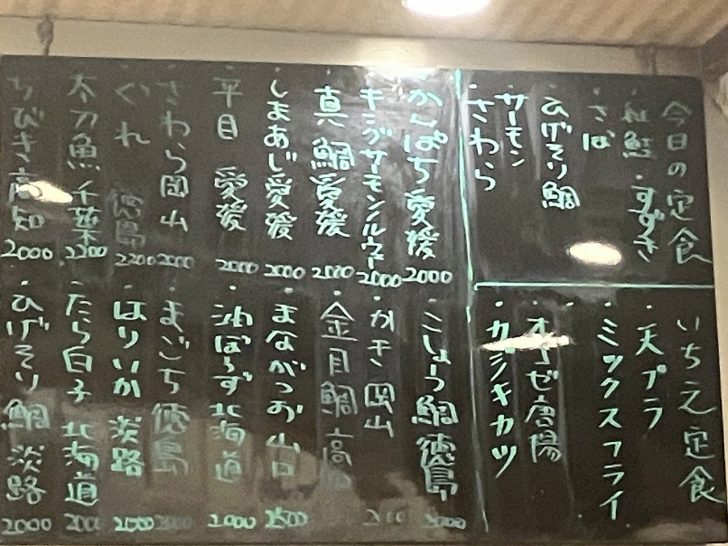 今日の定食
・紅鮭・すずき
・さば
・ひげそり鯛
・サーモン
・さわら
いちえ定食
・天プラ
・ミックスフライ
・オキゼ唐陽
・カジキカツ
・かんぱち愛媛 2000
・キングサーモンノルウェー 2000
・真鯛愛媛 2000
・しまあじ愛媛 2000
・平目 愛媛 2000
・さわら岡山 2000
・ぐれ 徳島 2200
・太刀魚千葉 2200
ちびき高知 2000
・こしょう鯛徳島 2000
・かき岡山
・金目鯛高
・まながつお山口 2500
・油ぼうず北海道 2000
・まごち徳島
・はりいか淡路 2500
・たら白子北海道 2000
・ひげそり鯛淡路 2000